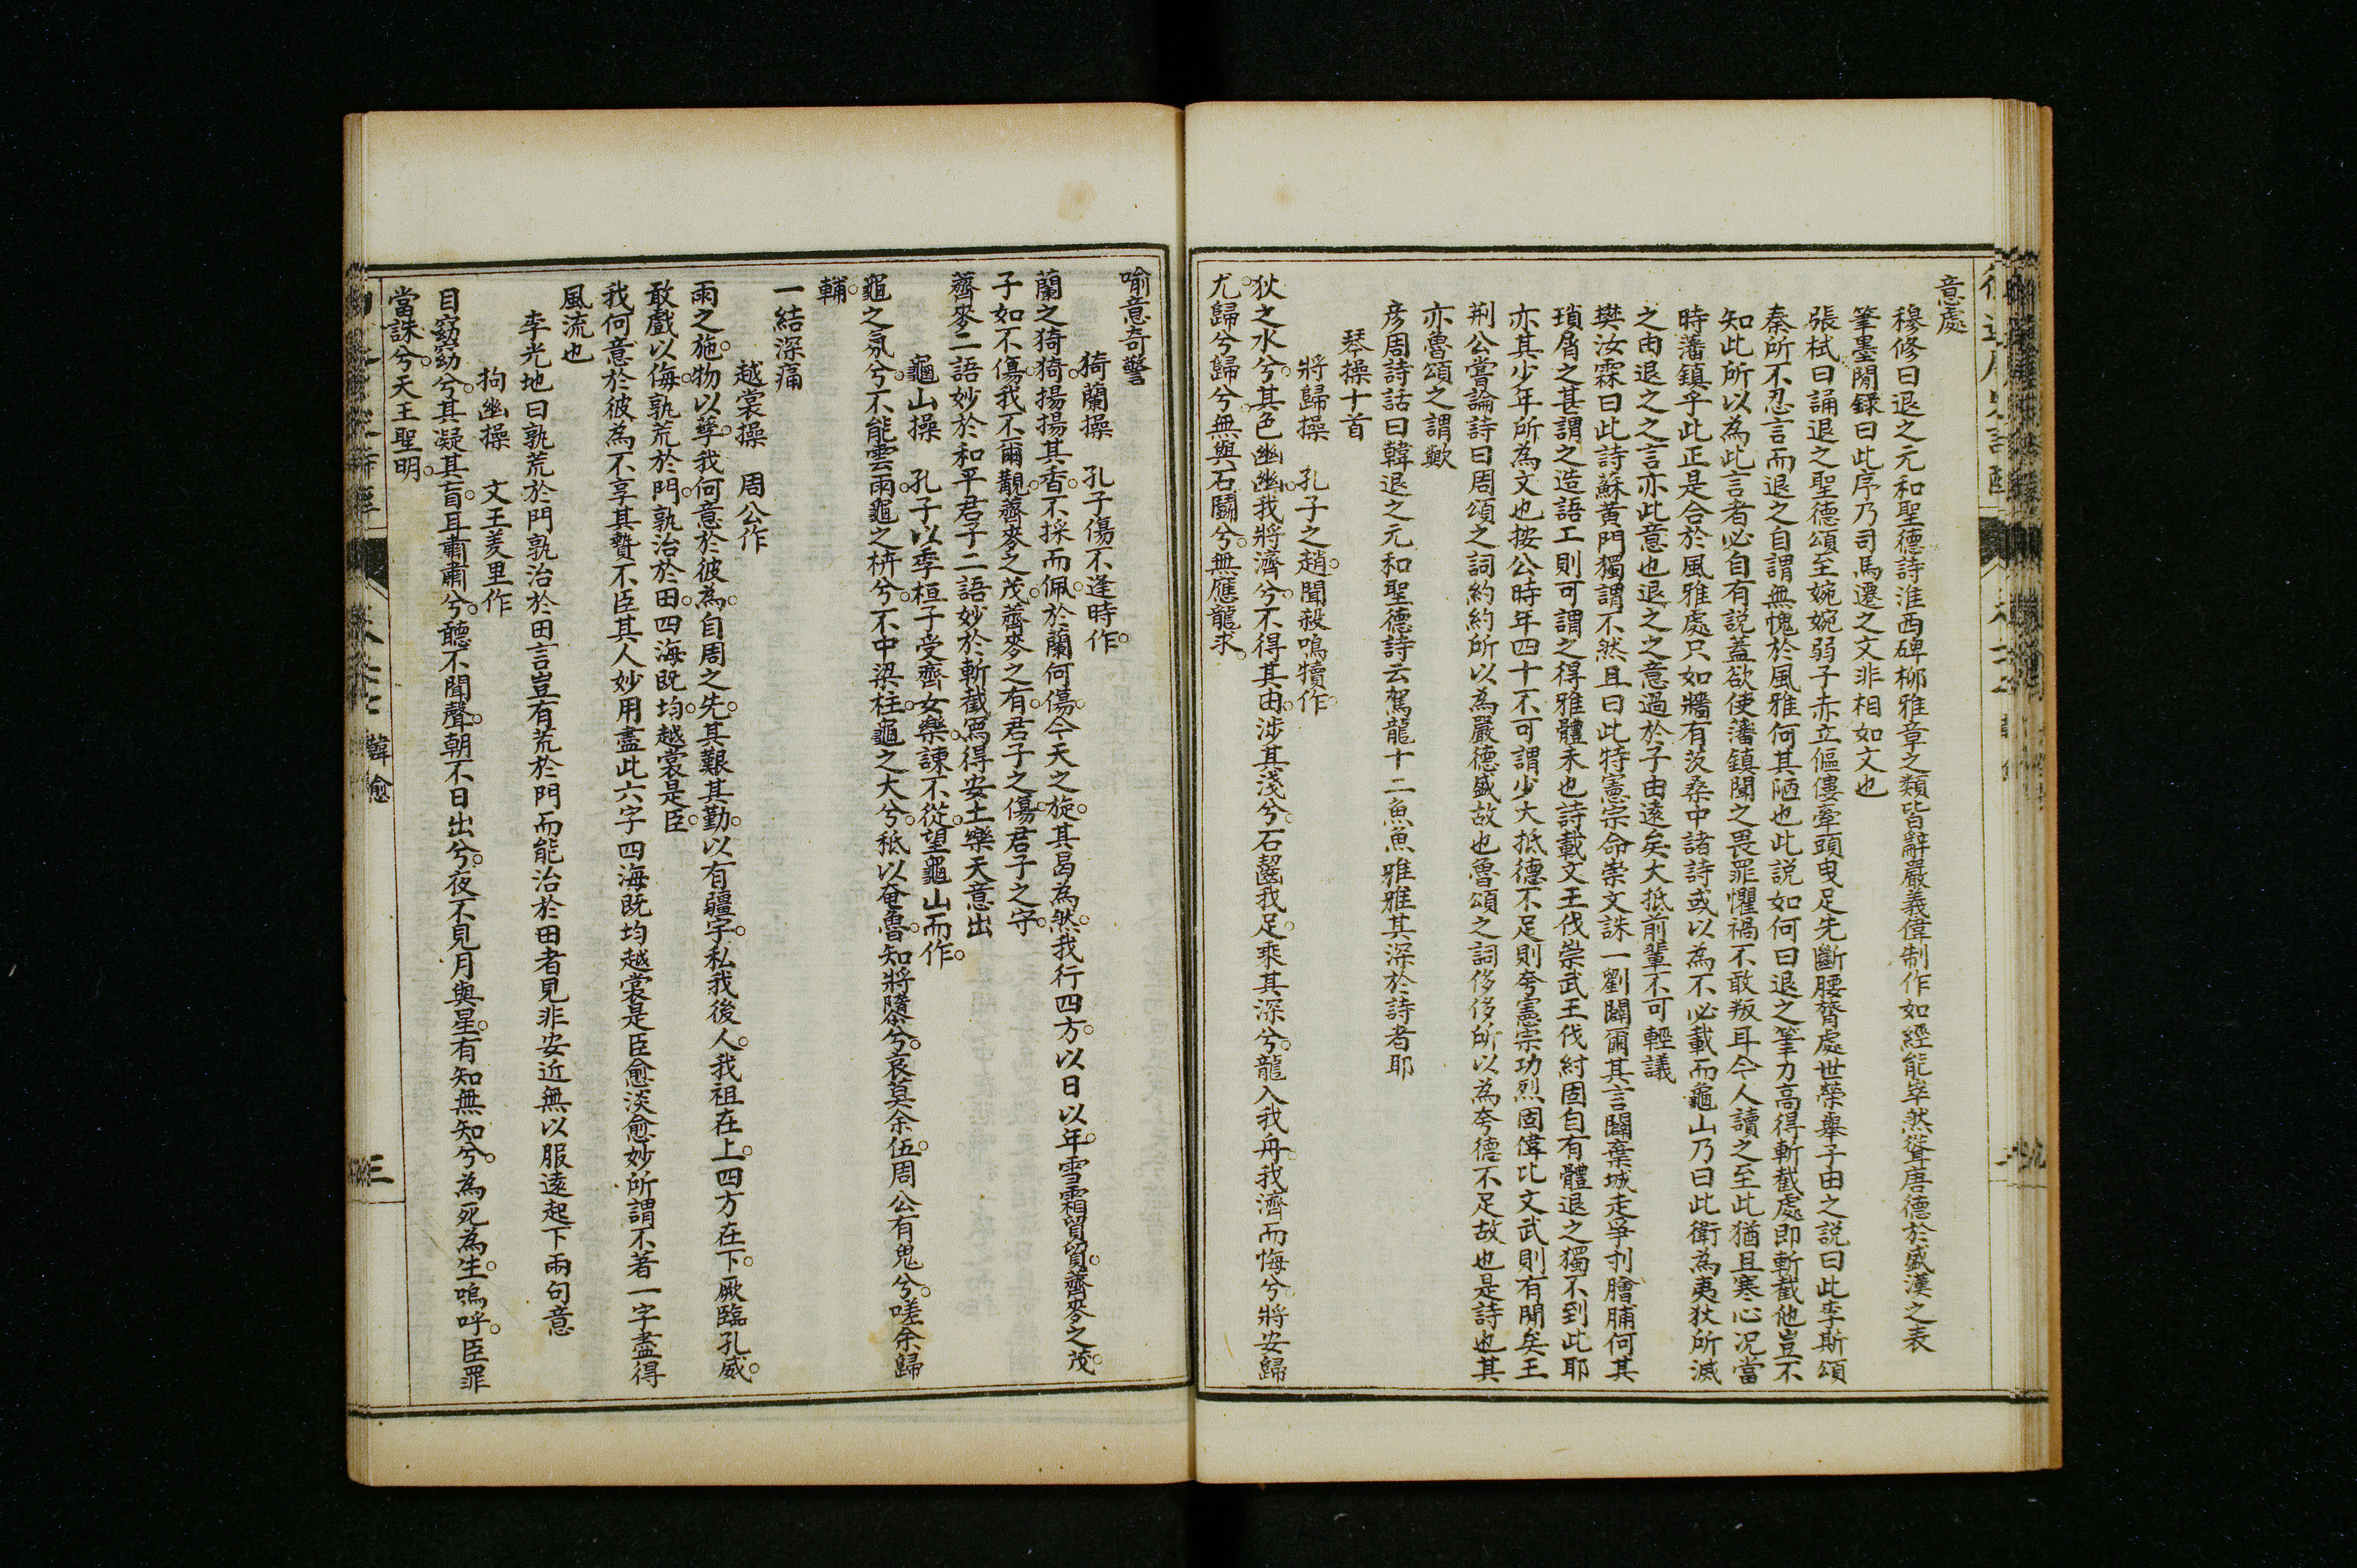 意處
穆修曰退之元和聖德詩淮西碑柳雅章之類皆辭嚴義偉制作如經能崒然聳唐德於盛漢之表
筆墨閒錄曰此序乃司馬遷之文非相如文也
張栻曰誦退之聖德頌至婉婉弱子赤立傴僂牽頭曳足先斷腰膂處世榮舉子由之說曰此李斯頌
秦所不忍言而退之自謂無愧於風雅何其陋也此說如何曰退之筆力高得斬截處即斬截他豈不
知此所以為此言者必自有說蓋欲使藩鎮聞之畏罪懼禍不敢叛耳今人讀之至此猶且寒心况當
時藩鎮乎此正是合於風雅處只如牆有茨桑中諸詩或以為不必載而龜山乃曰此衛為夷狄所滅
之由退之之言亦此意也退之之意過於子由遠矣大抵前輩不可輕議
樊汝霖曰此詩蘇黃門獨謂不然且曰此特憲宗命崇文誅一劉闢爾其言闢棄城走爭刌膾脯何其
瑣屑之甚謂之造語工則可謂之得雅體未也詩載文王伐崇武王伐紂固自有體退之獨不到此耶
亦其少年所為文也按公時年四十不可謂少大抵德不足則夸憲宗功烈固偉比文武則有閒矣王
荆公嘗論詩曰周頌之詞約約所以為嚴德盛故也魯頌之詞侈侈所以為夸德不足故也是詩也其
亦魯頌之謂歟
彥周詩話曰韓退之元和聖德詩云駕龍十二魚魚雅雅其深於詩者耶
琴操十首
將歸操 孔子之趙聞殺鳴犢作
狄之水兮其色幽幽我將濟兮不得其由涉其淺兮石齧我足乘其深兮龍入我舟我濟而悔兮將安歸
尤歸兮歸兮無與石鬭兮無應龍求
喻意奇警
猗蘭操 孔子傷不逢時作
蘭之猗猗揚揚其香不採而佩於蘭何傷今天之旋其曷為然我行四方以日以年雪霜貿貿薺麥之茂
子如不傷我不爾覯薺麥之茂薺麥之有君子之傷君子之守
薺麥二語妙於和平君子二語妙於斬截寫得安土樂天意出
龜山操 孔子以季桓子受齊女樂諫不從望龜山而作
龜之氛兮不能雲雨龜之枿兮不中梁柱龜之大兮秖以奄魯知將隳兮哀莫余伍周公有鬼兮嗟余歸
輔
一結深痛
越裳操 周公作
雨之施物以孳我何意於彼為自周之先其艱其勤以有疆宇私我後人我祖在上四方在下厥臨孔威
敢戲以侮孰荒於門孰治於田四海既均越裳是臣
我何意於彼為不享其贄不臣其人妙用盡此六字四海既均越裳是臣愈淡愈妙所謂不著一字盡得
風流也
李光地曰孰荒於門孰治於田言豈有荒於門而能治於田者見非安近無以服遠起下兩句意
拘幽操 文王羑里作
目窈窈兮其凝其盲耳肅肅兮聽不聞聲朝不日出兮夜不見月與星有知無知兮為死為生嗚呼臣罪
當誅兮天王聖明
韓愈
三